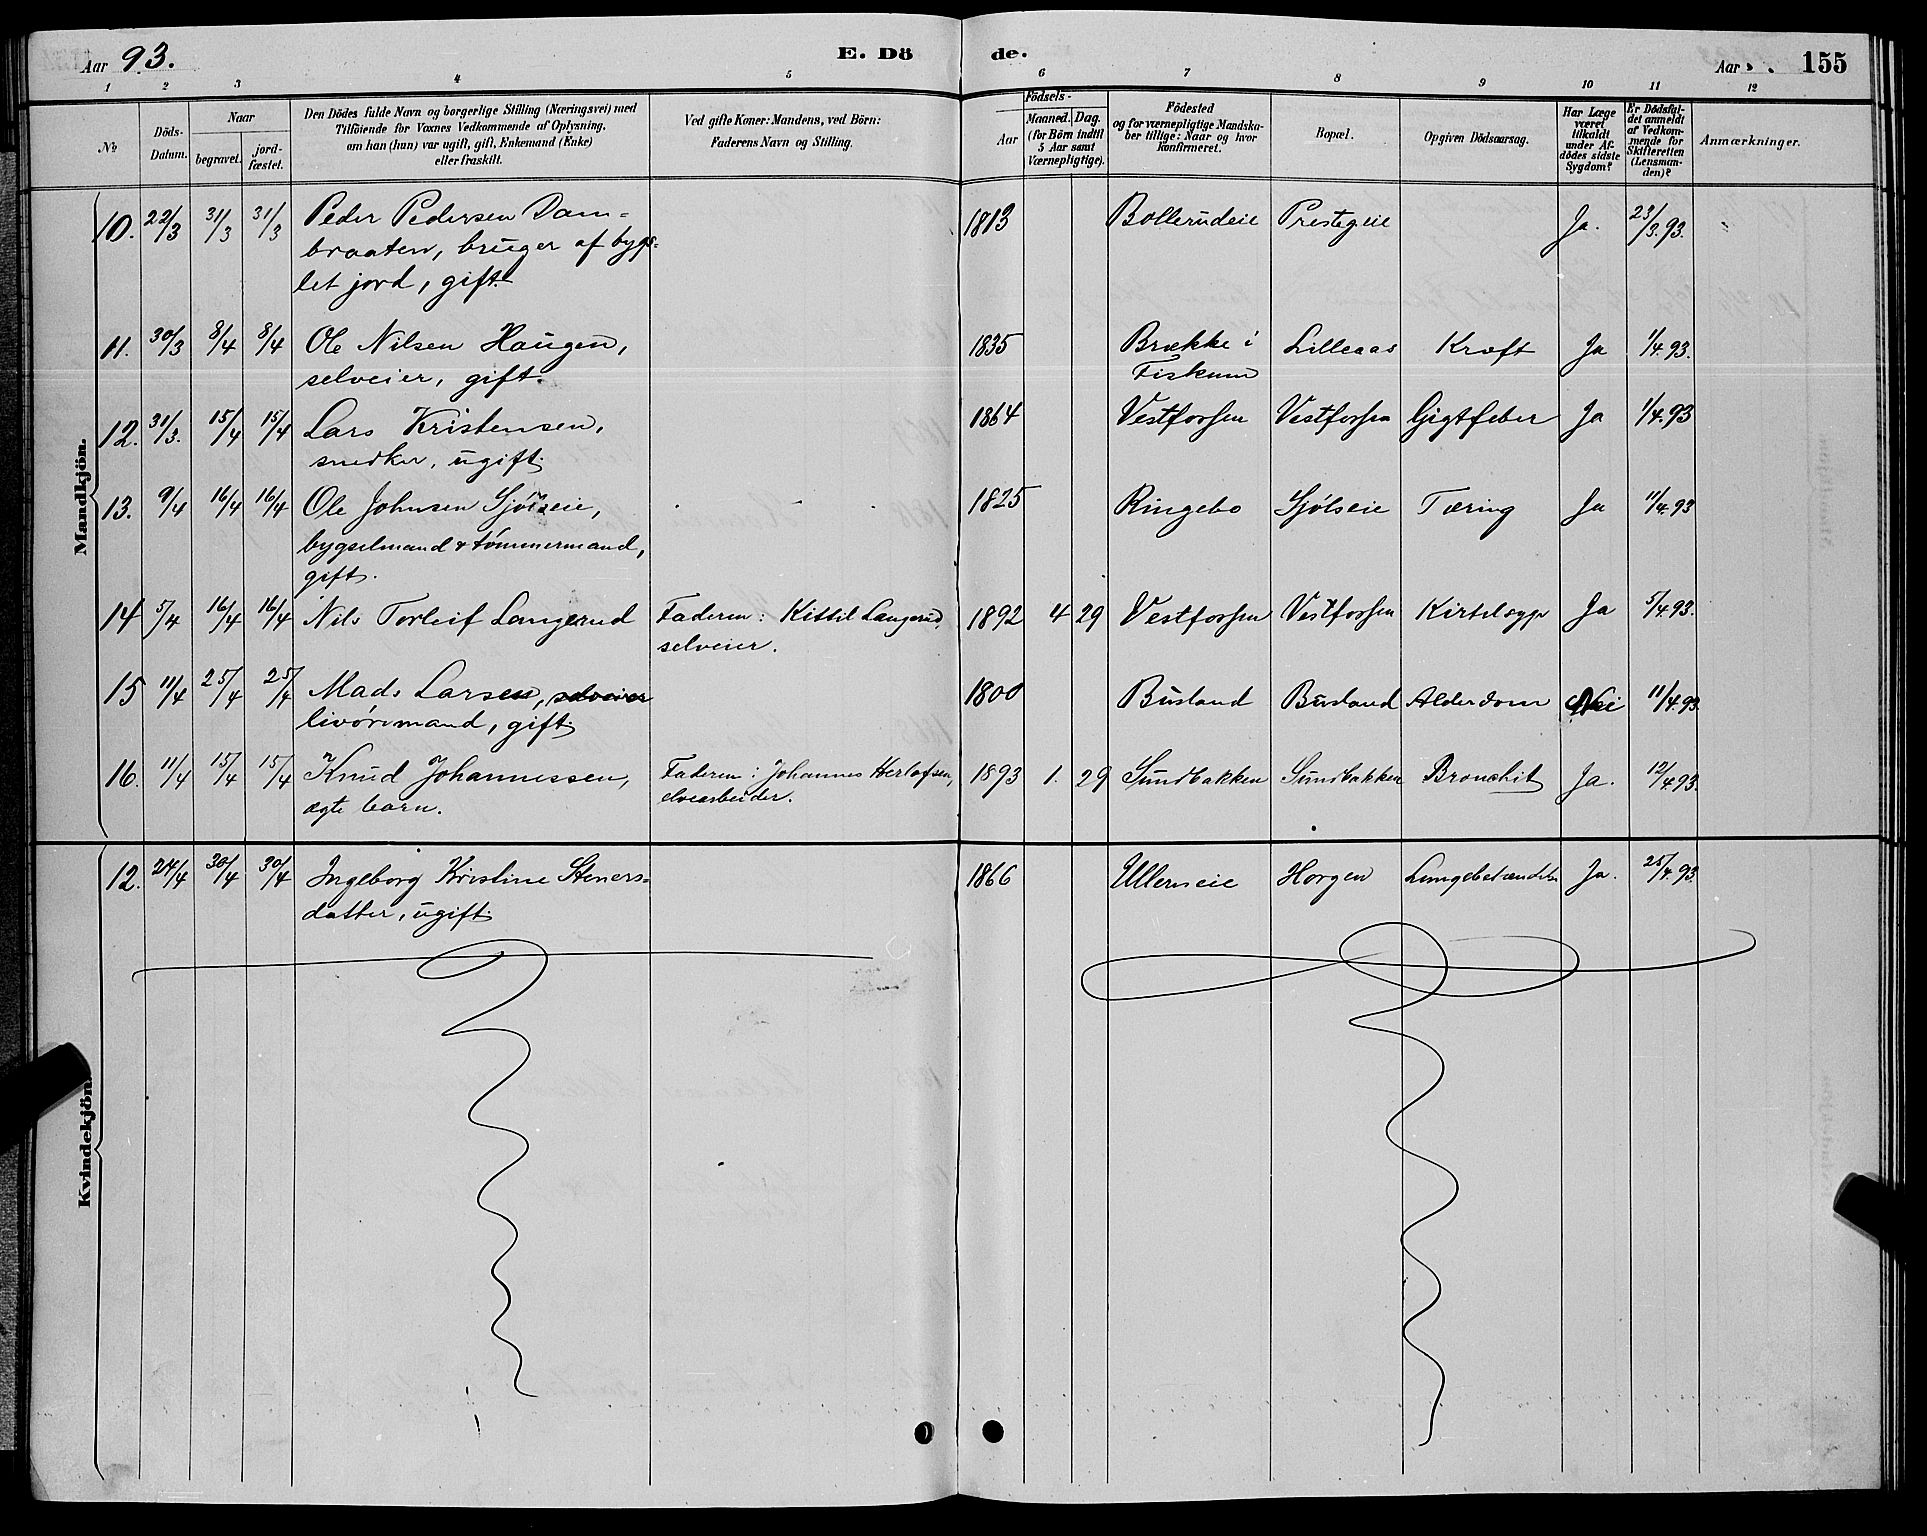 Aar 93.
E. Dö
de.
Aar
155
1 2 3 4 5 6 7 8 9 10 11 12
No
Döds-
Datum.
Naar
begravet.
jord-
fæstet.
Den Dödes fulde Navn og borgerlige Stilling (Næringsvei) med
Tilföiende for Voxnes Vedkommende af Oplysning,
om han (hun) var ugift, gift, Enkemand (Enke)
eller fraskilt.
Ved gifte Koner: Mandens, ved Börn:
Faderens Navn og Stilling.
Födsels-
Aar
Maaned. Dag.
(for Börn indtil
5 Aar samt
Værnepligtige).
Födested
og for værnepligtige Mandska-
ber tillige: Naar og hvor
konfirmeret.
Bopæl.
Opgiven Dödsaarsag.
Har Læge
været
tilkaldt
under Af-
dödes sidste
Sygdom?
Er Dödsfal-
det anmeldt
af Vedkom-
mende for
Skifteretten
(Lensman-
den)?
Anmærkninger.
Mandkjön.
10. 22/3 31/3 31/3 Peder Pedersen Dam- 1813 Bollerudeie Prestegeie Ja. 23/3.93. "
braaten, bruger af bygs-
let jord, gift.
11. 30/3 8/4 8/4 Ole Nilsen Haugen, 1835 Brække i Lilleaas Kræft Ja 1/4.93.
selveier, gift. Fiskum
12. 31/3. 15/4 15/4 Lars Kristensen, 1864 Vestfossen Vestfossen Gigtfeber Ja 1/4.93
snedker, ugift.
13. 9/4 16/4 16/4 Ole Johnsen Sjölseie, 1825 Ringebo Sjölseie Tæring Ja 11/4.93
bygselmand & tömmermand,
gift.
14 5/4 16/4 16/4 Nils Torleif Langerud Faderen: Kittil Langerud, 1892 4 29 Vestfossen Vestfossen Kirtelsyge Ja 5/4.93.
selveier.
15 11/4 25/4 25/4 Mads Larsen, selveier 1800 Busland Busland Alderdom Nei 11/4.93.
livöresmand, gift.
16. 11/4 15/4 15/4 Knud Johannessen, Faderen: Johannes Herlofsen, 1893 1. 29 Sundbakken Sundbakken Bronchit Ja. 12/4.93.
ægte barn. elvearbeider.
Kvindekjön.
12. 24/4 30/4 30/4 Ingeborg Kristine Steners- 1866 Ullerneie Horgen Lungebetændelse Ja. 25/4.93.
datter, ugift.